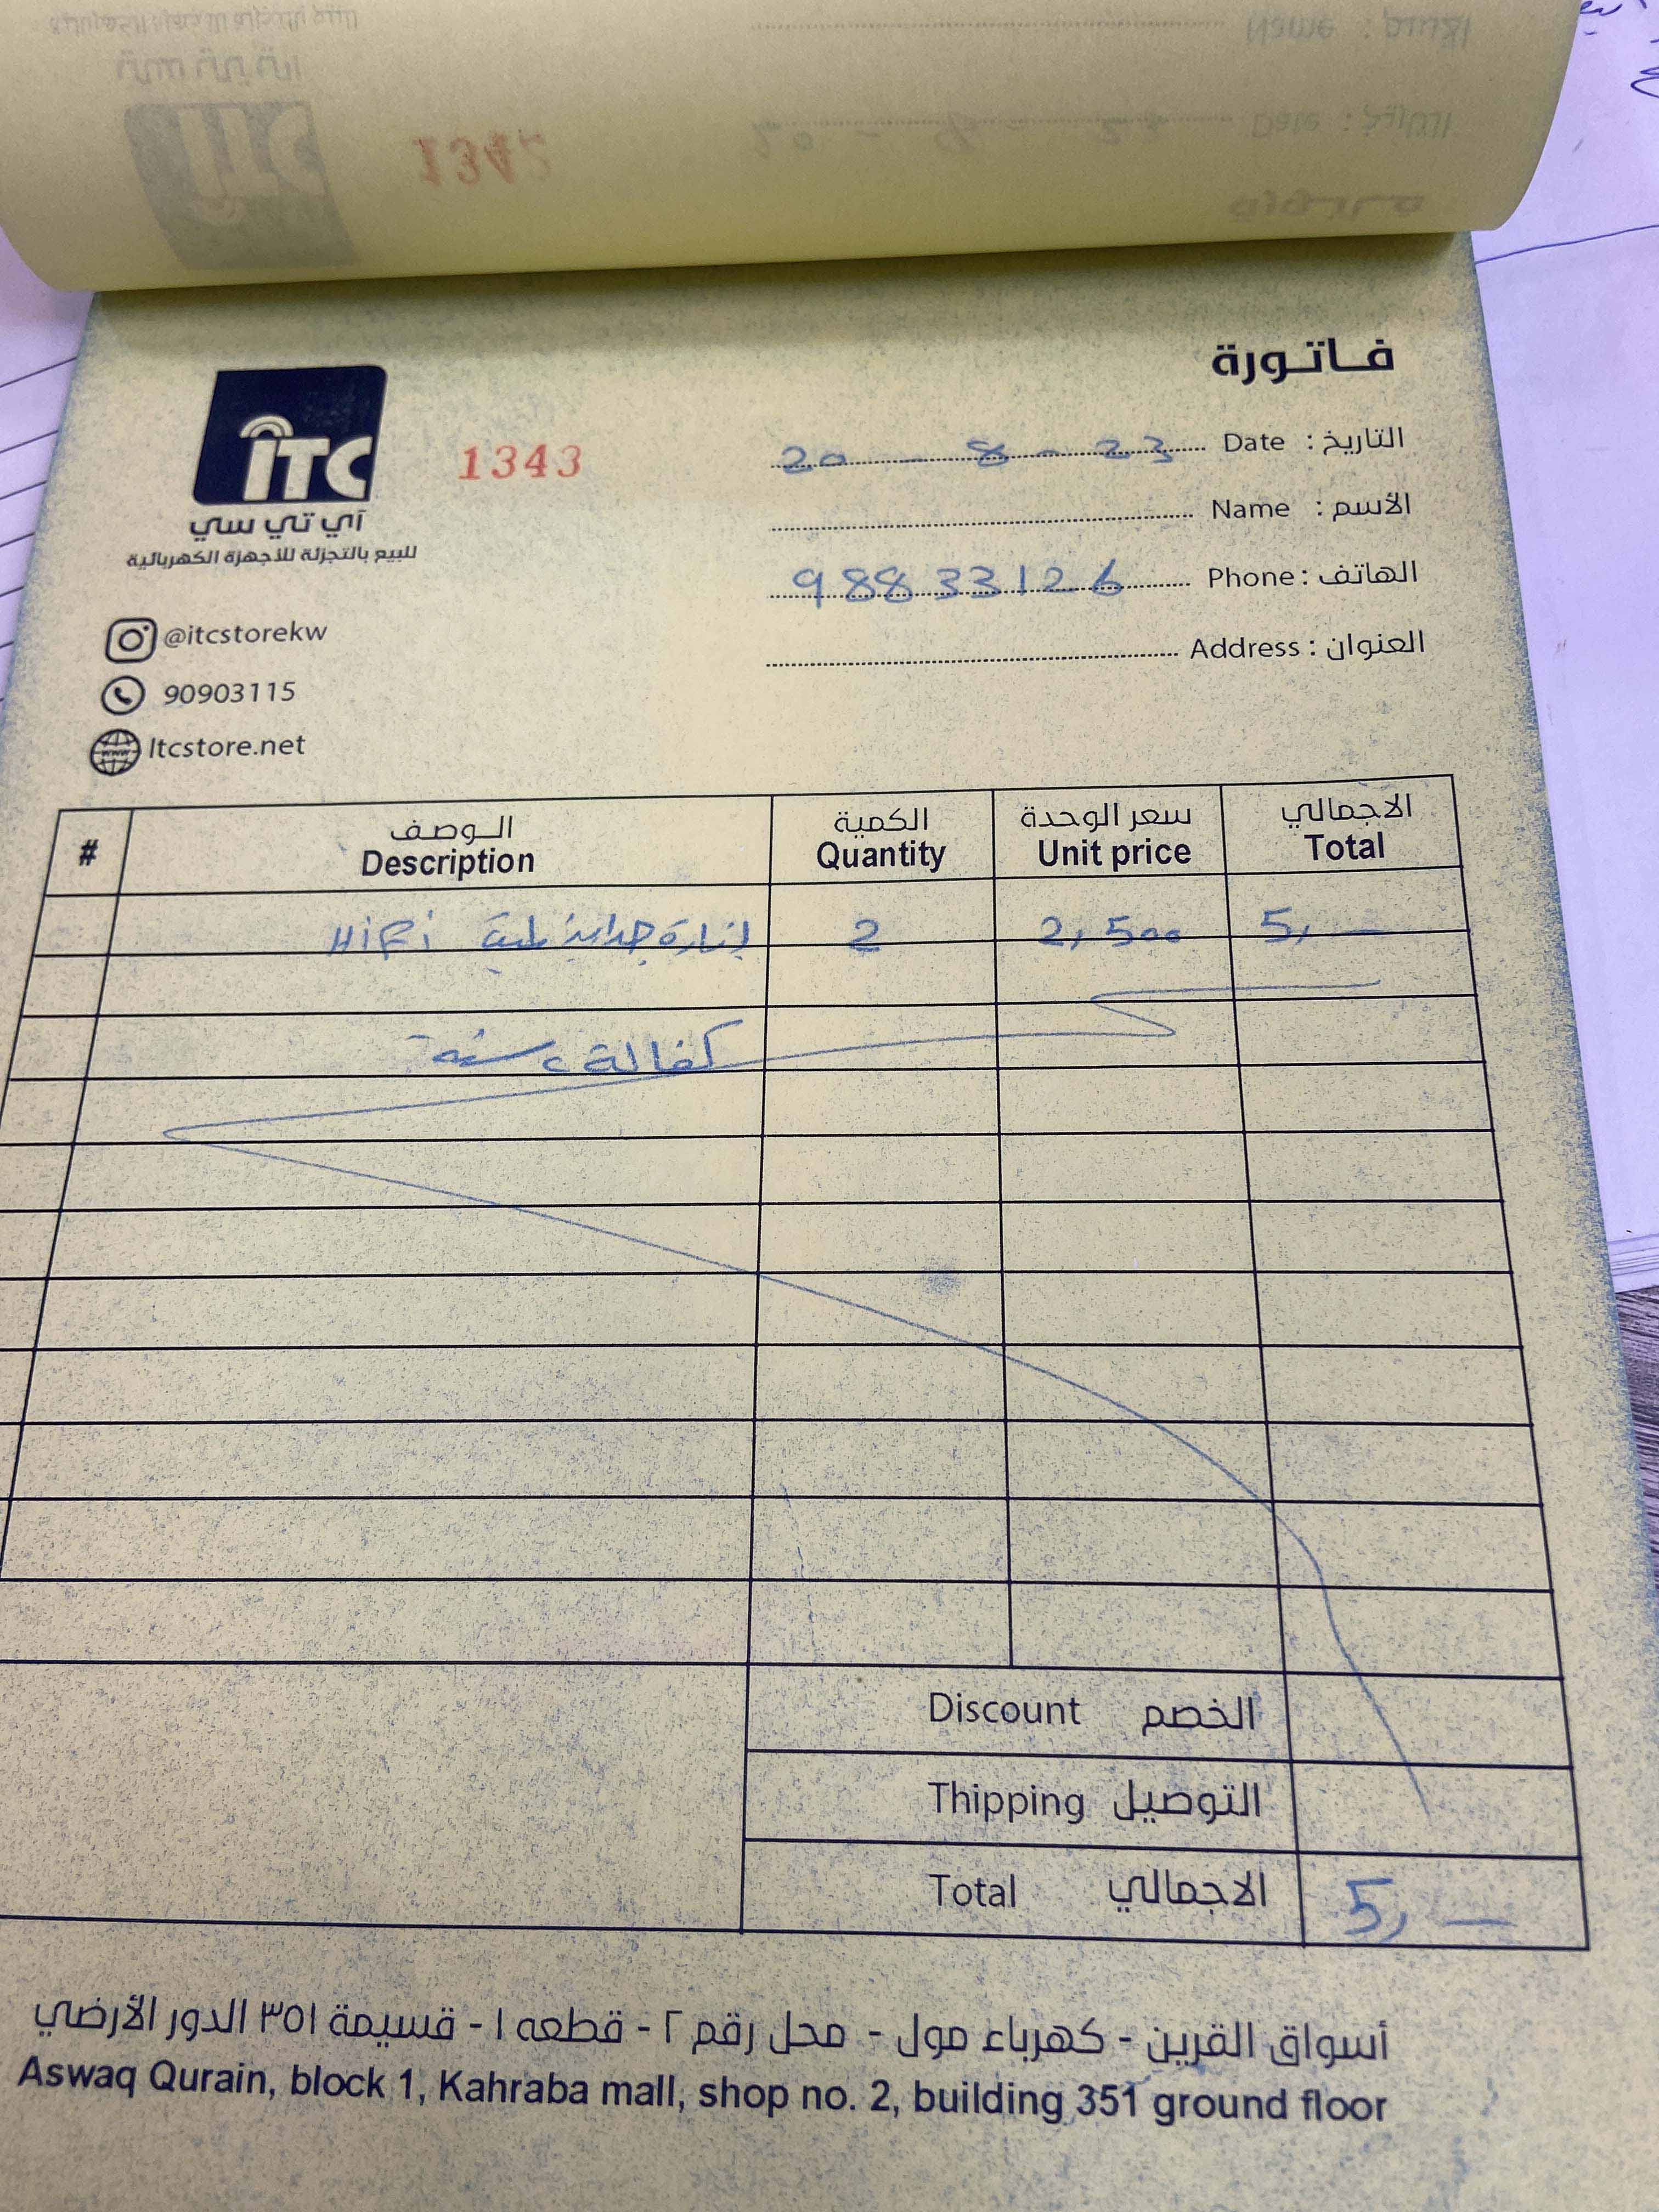 1342
فاتورة
ITC
آي تي سي
للبيع بالتجزئة للأجهزة الكهربائية
1343
التاريخ : Date 20 - 8 - 23
الأسم : Name
الهاتف : Phone 98833126
العنوان : Address
@itcstorekw
90903115
Itcstore.net
# الوصف الكمية سعر الوحدة الاجمالي
Description Quantity Unit price Total
إنارة جدارية 2 2,500 5,—
كفالة سنة
Discount الخصم
Thipping التوصيل
Total الاجمالي 5,—
أسواق القرين - كهرباء مول - محل رقم ٢ - قطعه ١ - قسيمة ٣٥١ الدور الأرضي
Aswaq Qurain, block 1, Kahraba mall, shop no. 2, building 351 ground floor